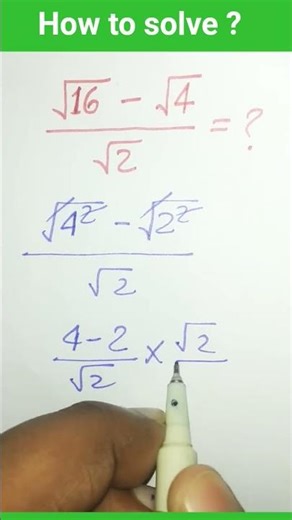 How to solve ?
√16 - √4
√2
= ?
√4² - √2²
√2
4-2
√2
× √2